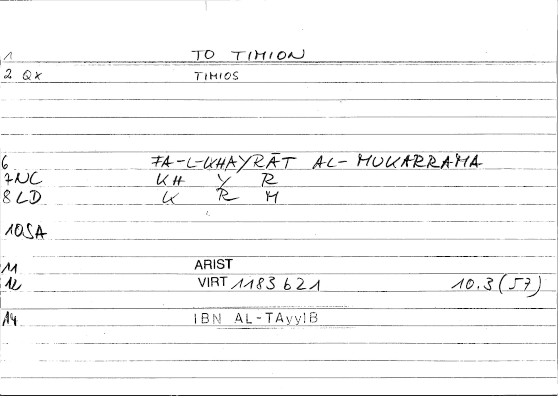 1 TO TIMION
2 QX TIMIOS
6 FA-L-KHAYRĀT AL-MUKARRAMA
7NC KH Y R
8LD K R M
10SA
11 ARIST
12 VIRT 1183621 10.3 (57)
14 IBN AL-TAyyIB